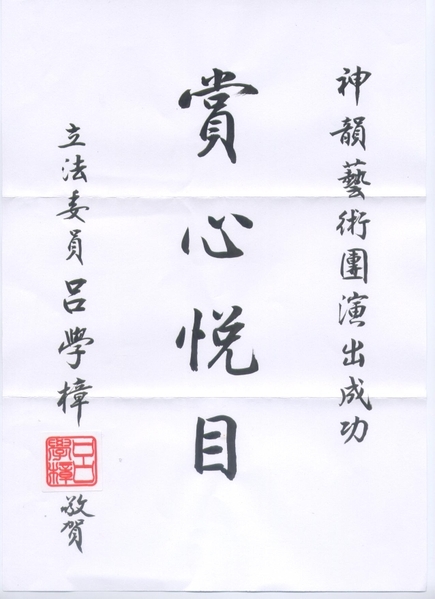 神韻藝術團演出成功
賞心悅目
立法委員呂學樟
呂學樟
敬賀